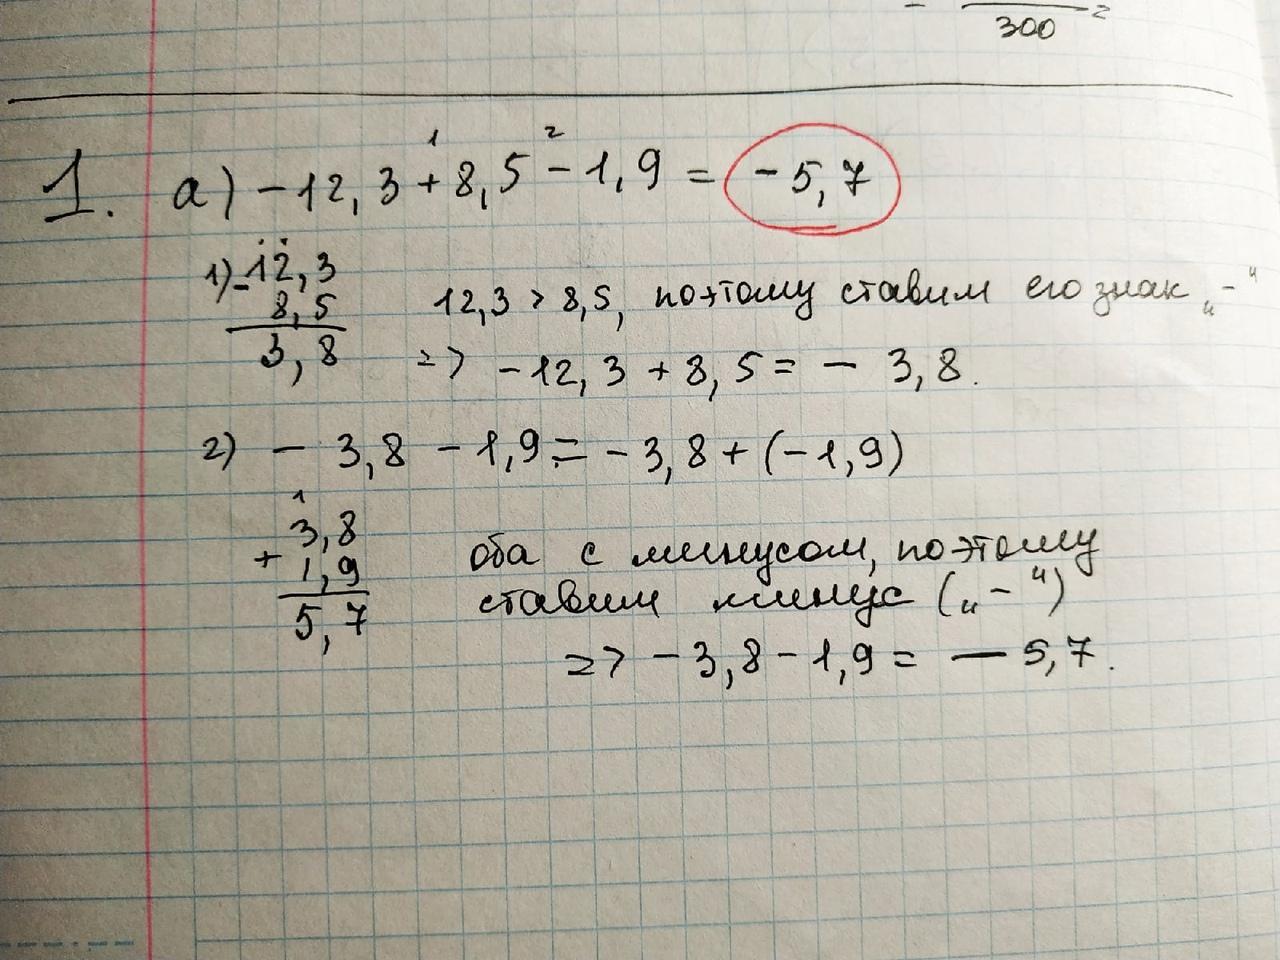 - 300 =
1 2
1. а) -12,3 + 8,5 - 1,9 = -5,7
1) - 12,3
8,5 12,3 > 8,5, поэтому ставим его знак „-“
3,8 => -12,3 + 8,5 = - 3,8.
2) - 3,8 - 1,9 = - 3,8 + (-1,9)
1
3,8
+ 1,9 оба с минусом, поэтому
5,7 ставим минус („-“)
=> - 3,8 - 1,9 = - 5,7.